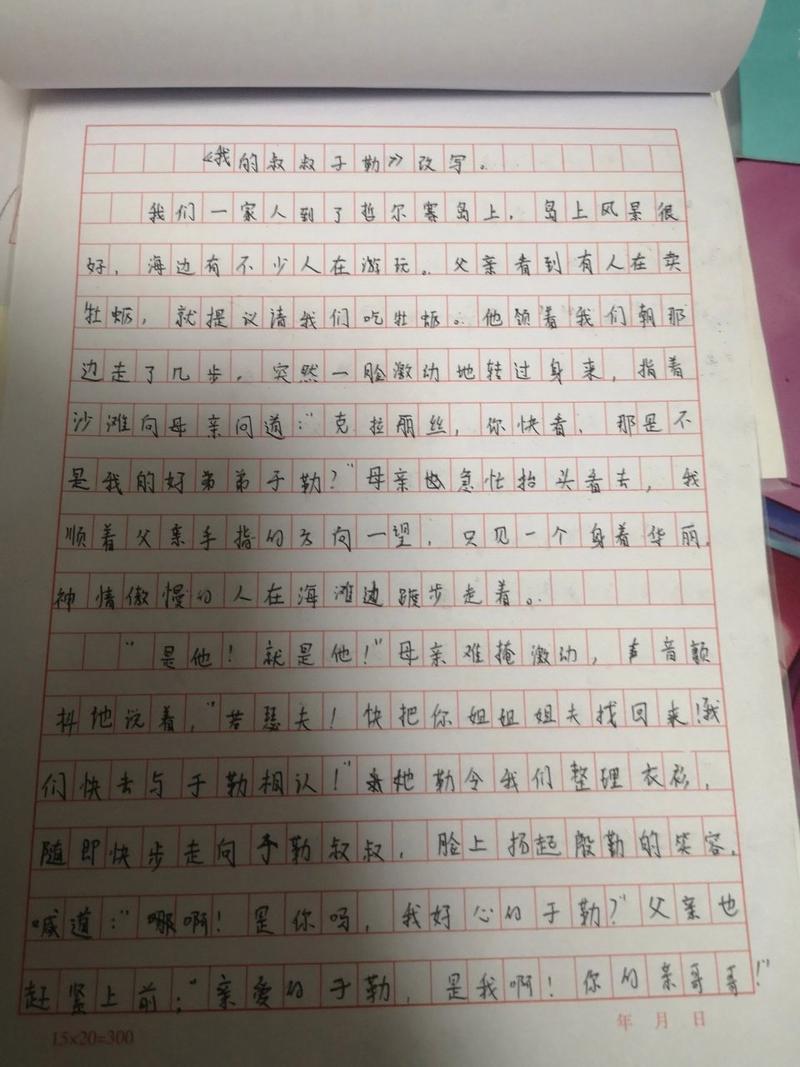 《我的叔叔于勒》改写。
我们一家人到了哲尔赛岛上，岛上风景很
好，海边有不少人在游玩。父亲看到有人在卖
牡蛎，就提议请我们吃牡蛎。他领着我们朝那
边走了几步，突然一脸激动地转过身来，指着
沙滩向母亲问道：“克拉丽丝，你快看，那是不
是我的好弟弟于勒？”母亲也急忙抬头看去，我
顺着父亲手指的方向一望，只见一个身着华丽，
神情傲慢的人在海滩边踱步走着。
“是他！就是他！”母亲难掩激动，声音颤
抖地说着，“若瑟夫！快把你姐姐姐夫找回来！我
们快去与于勒相认！”她勒令我们整理衣衫，
随即快步走向于勒叔叔，脸上扬起殷勤的笑容，
喊道：“哪啊！是你吗，我好心的于勒？”父亲也
赶紧上前：“亲爱的于勒，是我啊！你的亲哥哥！”
15×20=300
年 月 日